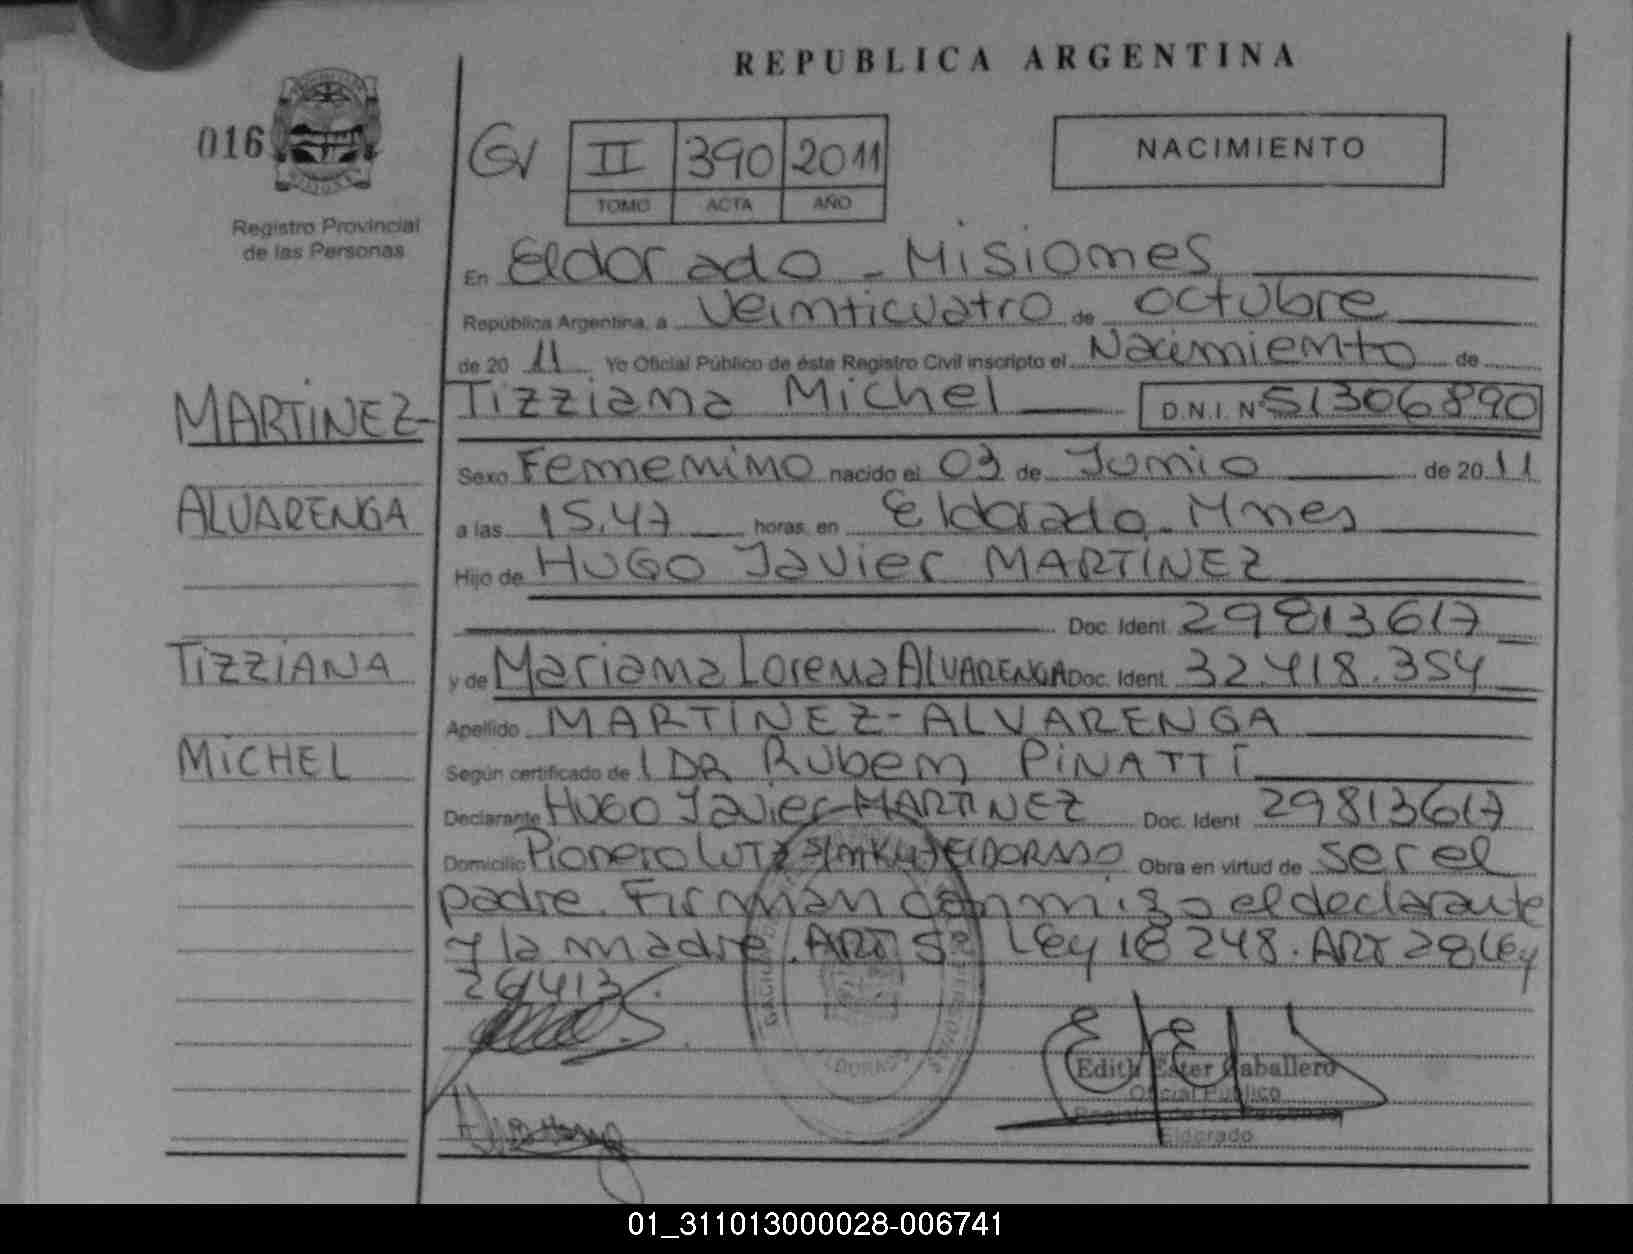 REPUBLICA ARGENTINA
016
GV
II 390 2011
TOMO ACTA AÑO
NACIMIENTO
Registro Provincial
de las Personas
En Eldorado - Misiones
República Argentina, a Veinticuatro de octubre
de 20 11 Yo Oficial Público de éste Registro Civil inscripto el Nacimiento de
MARTÍNEZ-
ALVARENGA
TIZZIANA
MICHEL
Tizziana Michel D.N.I. Nº 51306890
Sexo Femenino nacido el 03 de Junio de 20 11
a las 15,47 horas, en Eldorado - Mnes
Hijo de HUGO Javier MARTÍNEZ
Doc. Ident. 29813617
y de Mariana Lorena ALVARENGA Doc. Ident. 32.418.354
Apellido MARTÍNEZ-ALVARENGA
Según certificado de DR Ruben PINATTI
Declarante HUGO Javier MARTINEZ Doc. Ident 29813617
Domicilio Pionero LUTZ ELDORADO Obra en virtud de ser el
padre. Firman conmigo el declarante
y la madre. ART 5º Ley 18248. ART 28 Ley
26413
Edith Ester Caballero
Oficial Público
Eldorado
01_311013000028-006741